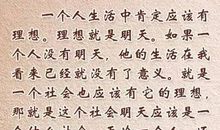 一个人生活中肯定应该有
理想。理想就是明天。如果一
个人没有明天，他的生活在我
看来已经就没有了意义。就是
一个社会也应该有它的理想，
那就是这个社会明天应该是一